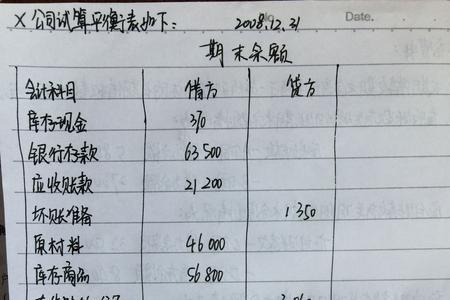 X公司试算平衡表如下: 2008.12.31
Date.
期末余额
会计科目 借方 贷方
库存现金 370
银行存款 63500
应收账款 21200
坏账准备 1350
原材料 46000
库存商品 56800